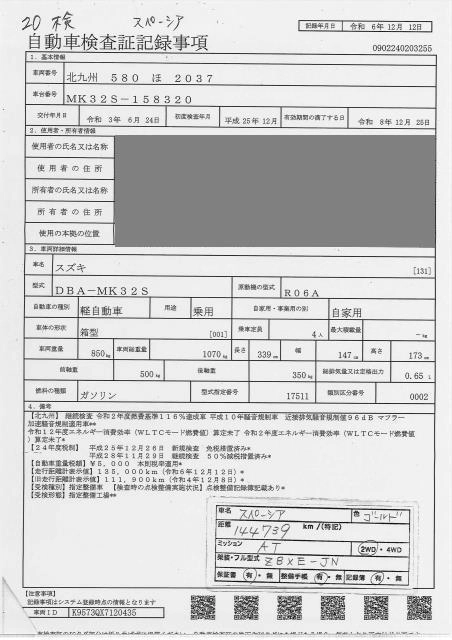 20検 スペーシア
記録年月日 令和 6年12月 12日
自動車検査証記録事項
0902240203255
1. 基本情報
車両番号 北九州 580 ほ 2037
車台番号 MK32S-158320
交付年月日 令和 3年 6月 24日 初度検査年月 平成 25年 12月 有効期間の満了する日 令和 8年 12月 25日
2. 使用者・所有者情報
使用者の氏名又は名称
使用者の住所
所有者の氏名又は名称
所有者の住所
使用の本拠の位置
3. 車両詳細情報
車名 スズキ [131]
型式 DBA-MK32S 原動機の型式 R06A
自動車の種別 軽自動車 用途 乗用 自家用・事業用の別 自家用
車体の形状 箱型 [001] 乗車定員 4人 最大積載量 -kg
車両重量 850kg 車両総重量 1070kg 長さ 339cm 幅 147cm 高さ 173cm
前軸重 500kg 後軸重 350kg 総排気量又は定格出力 0.65 l
燃料の種類 ガソリン 型式指定番号 17511 類別区分番号 0002
4. 備考
【北九州】 継続検査 令和2年度燃費基準116%達成車 平成10年騒音規制車 近接排気騒音規制値96dB マフラー
加速騒音規制適用車**
令和12年度エネルギー消費効率(WLTCモード燃費値)算定未了 令和2年度エネルギー消費効率(WLTCモード燃費値
)算定未了*
【24年度税制】 平成25年12月26日 新規検査 免税措置済み*
平成28年11月29日 継続検査 50%減税措置済み*
【自動車重量税額】¥5,000 本則税率適用*
【走行距離計表示値】135,000km(令和6年12月12日)*
【旧走行距離計表示値】111,900km(令和4年12月8日)*
【受検種別】指定整備車 【検査時の点検整備実施状況】点検整備記録簿記載あり*
【受検形態】指定整備工場**
車名 スペーシア 色 ゴールド
距離 144739 km/(特記)
ミッション AT 2WD・4WD
架装・フル型式 ZBXE-JN
保証書 有・無 整備手帳 有・無 記録簿 有・無
【注意事項】
記録事項はシステム登録時点の情報となります
車両ID K9573QX7120435